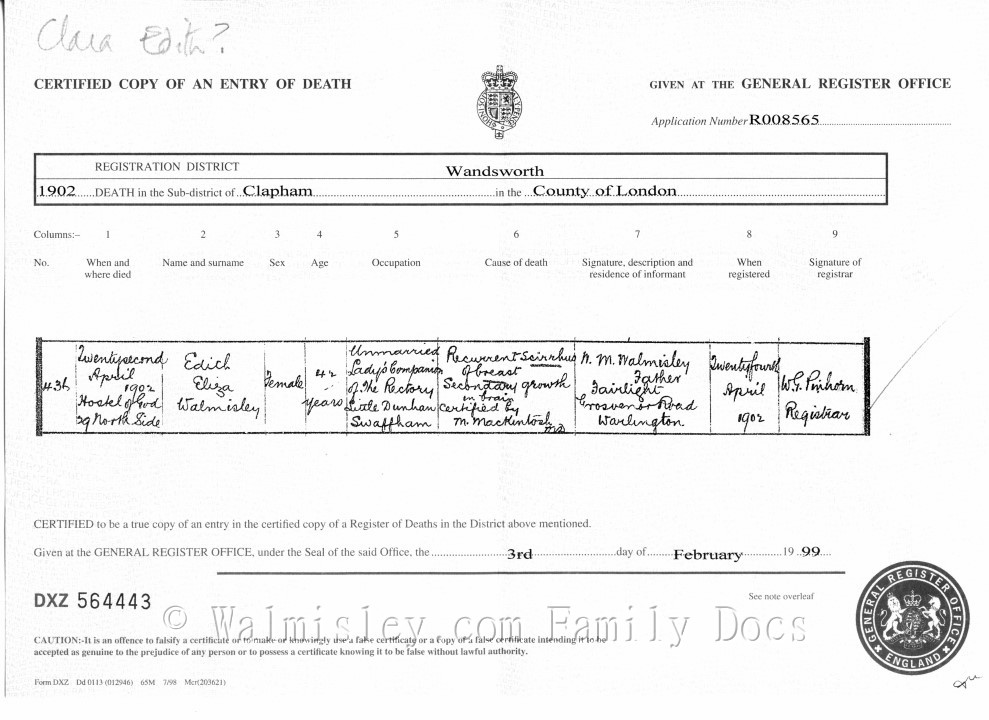 Clara Edith?
CERTIFIED COPY OF AN ENTRY OF DEATH
GIVEN AT THE GENERAL REGISTER OFFICE
Application Number R008565
REGISTRATION DISTRICT Wandsworth
1902 DEATH in the Sub-district of Clapham in the County of London
Columns:– 1 2 3 4 5 6 7 8 9
No. When and where died Name and surname Sex Age Occupation Cause of death Signature, description and residence of informant When registered Signature of registrar
436
Twentysecond
April
1902
Hostel of God
29 North Side
Edith
Eliza
Walmisley
Female
42
years
Unmarried
Lady's Companion
of The Rectory
Little Dunham
Swaffham
Recurrent Scirrhus
of breast
Secondary growth
in brain
Certified by
M. Mackintosh
MD
Walmisley
Father
Fairlight
Grosvenor Road
Warlington
Twentyfourth
April
1902
W.G. Pinhorn
Registrar
CERTIFIED to be a true copy of an entry in the certified copy of a Register of Deaths in the District above mentioned.
Given at the GENERAL REGISTER OFFICE, under the Seal of the said Office, the 3rd day of February 19 99
See note overleaf
DXZ 564443
© Walmisley.com Family Docs
CAUTION:-It is an offence to falsify a certificate or to make or knowingly use a false certificate or a copy of a false certificate intending it to be
accepted as genuine to the prejudice of any person or to possess a certificate knowing it to be false without lawful authority.
Form DXZ Dd 0113 (012946) 65M 7/98 Mcr(203621)
GENERAL REGISTER OFFICE
ENGLAND